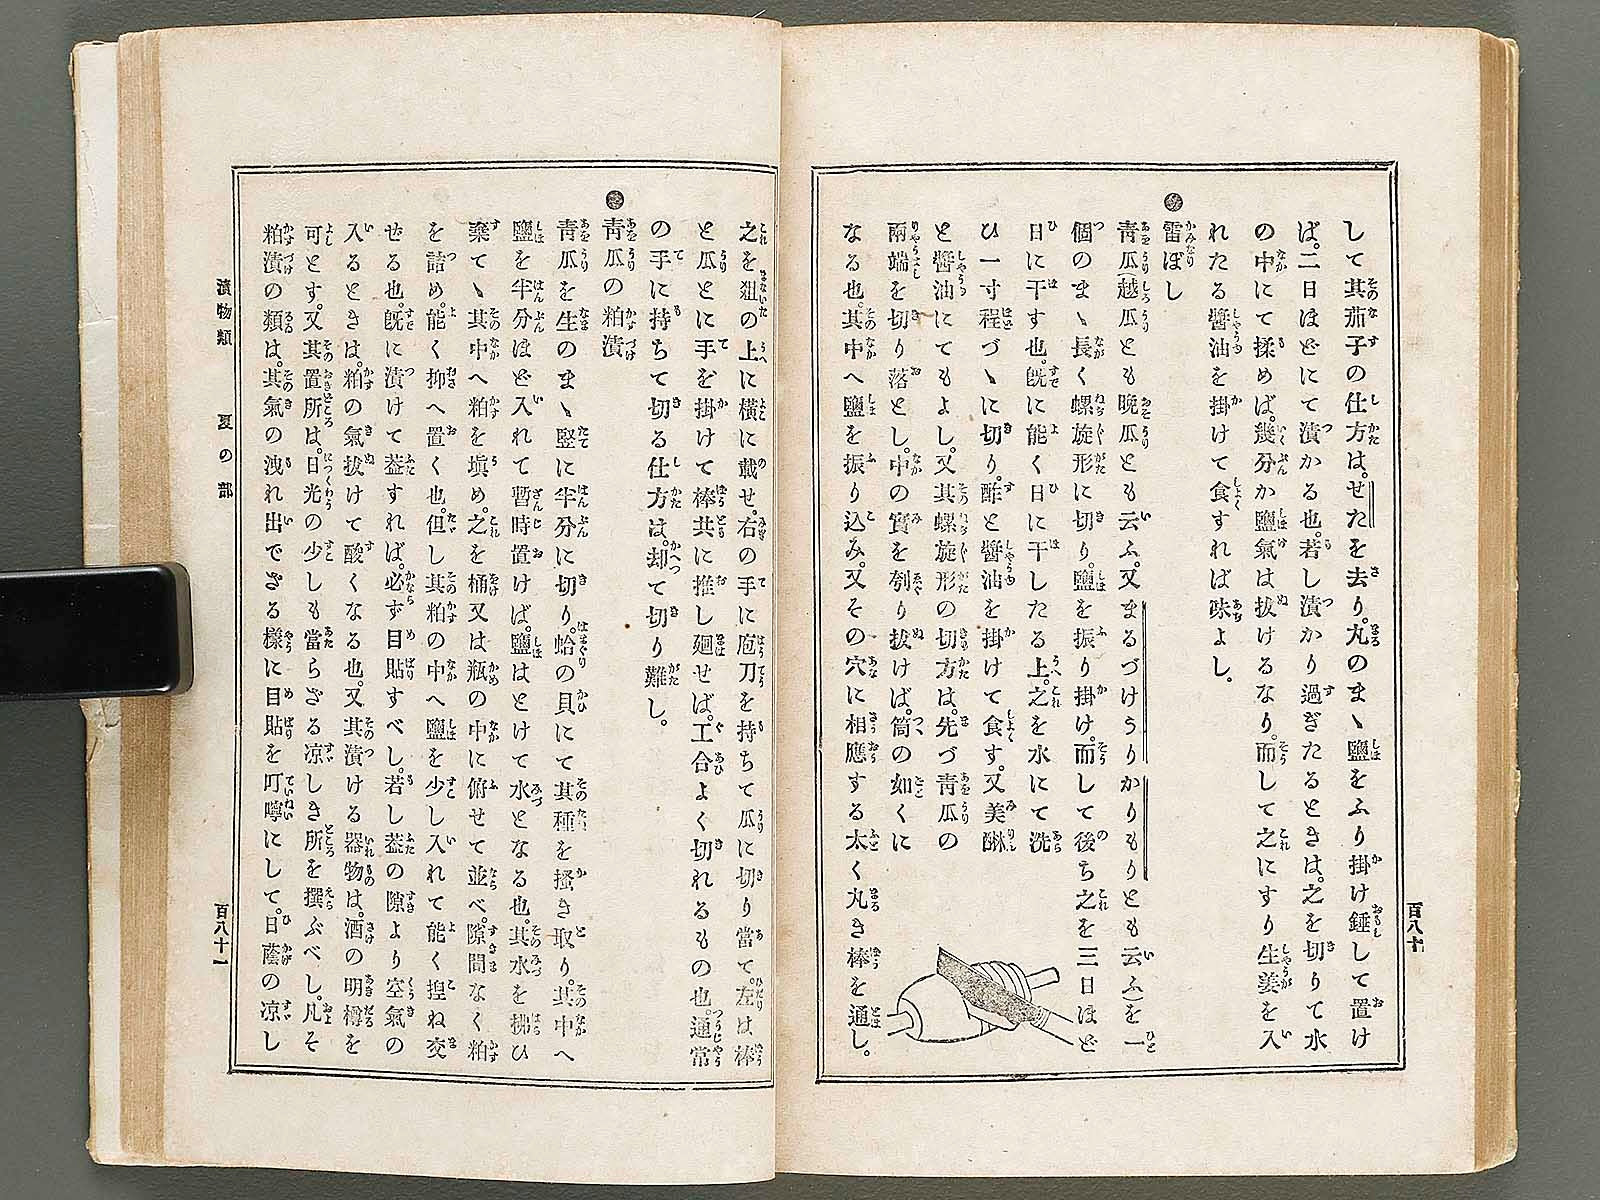 して其茄子の仕方は。せたを去り。丸のまゝ鹽をふり掛け錘して置け
ば。二日ほどにて漬かる也。若し漬かり過ぎたるときは。之を切りて水
の中にて揉めば。幾分か鹽氣は拔けるなり。而して之にすり生姜を入
れたる醬油を掛けて食すれば味よし。
雷ぼし
靑瓜(越瓜とも晩瓜とも云ふ。又まるづけうりかりもりとも云ふ)を一
個のまゝ長く螺旋形に切り。鹽を振り掛け。而して後ち之を三日ほど
日に干す也。既に能く日に干したる上。之を水にて洗
ひ一寸程づゝに切り。酢と醬油を掛けて食す。又美醂
と醬油にてもよし。又其螺旋形の切方は。先づ靑瓜の
兩端を切り落とし。中の實を刳り拔けば。筒の如くに
なる也。其中へ鹽を振り込み。又その穴に相應する太く丸き棒を通し。
百八十
之を俎の上に橫に載せ。右の手に庖刀を持ちて瓜に切り當て。左は棒
と瓜とに手を掛けて棒共に推し廻せば。工合よく切れるもの也。通常
の手に持ちて切る仕方は。却て切り難し。
靑瓜の粕漬
靑瓜を生のまゝ竪に半分に切り。蛤の貝にて其種を搔き取り。其中へ
鹽を半分ほど入れて暫時置けば。鹽はとけて水となる也。其水を拂ひ
棄てゝ其中へ粕を塡め。之を桶又は瓶の中に俯せて並べ。隙間なく粕
を詰め。能く抑へ置く也。但し其粕の中へ鹽を少し入れて能く捏ね交
せる也。既に漬けて蓋すれば。必ず目貼すべし。若し蓋の隙より空氣の
入るときは。粕の氣拔けて酸くなる也。又其漬ける器物は。酒の明樽を
可とす。又其置所は。日光の少しも當らざる凉しき所を撰ぶべし。凡そ
粕漬の類は。其氣の洩れ出でざる樣に目貼を叮嚀にして。日蔭の凉し
漬物類 夏の部
百八十一